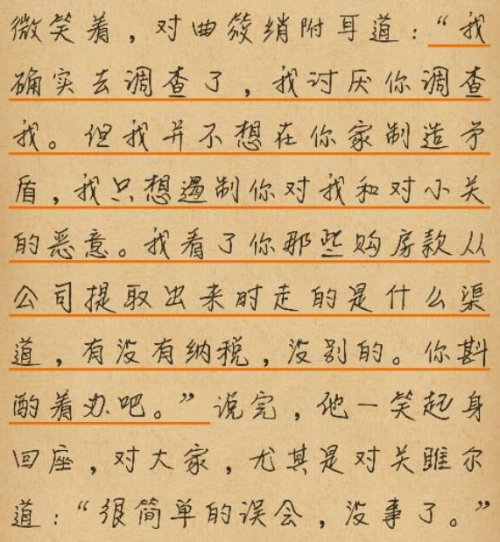 微笑着，对曲筱绡附耳道：“我
确实去调查了，我讨厌你调查
我。但我并不想在你家制造矛
盾，我只想遏制你对我和对小关
的恶意。我看了你那些购房款从
公司提取出来时走的是什么渠
道，有没有纳税，没别的。你斟
酌着办吧。”说完，他一笑起身
回座，对大家，尤其是对关雎尔
道：“很简单的误会，没事了。”